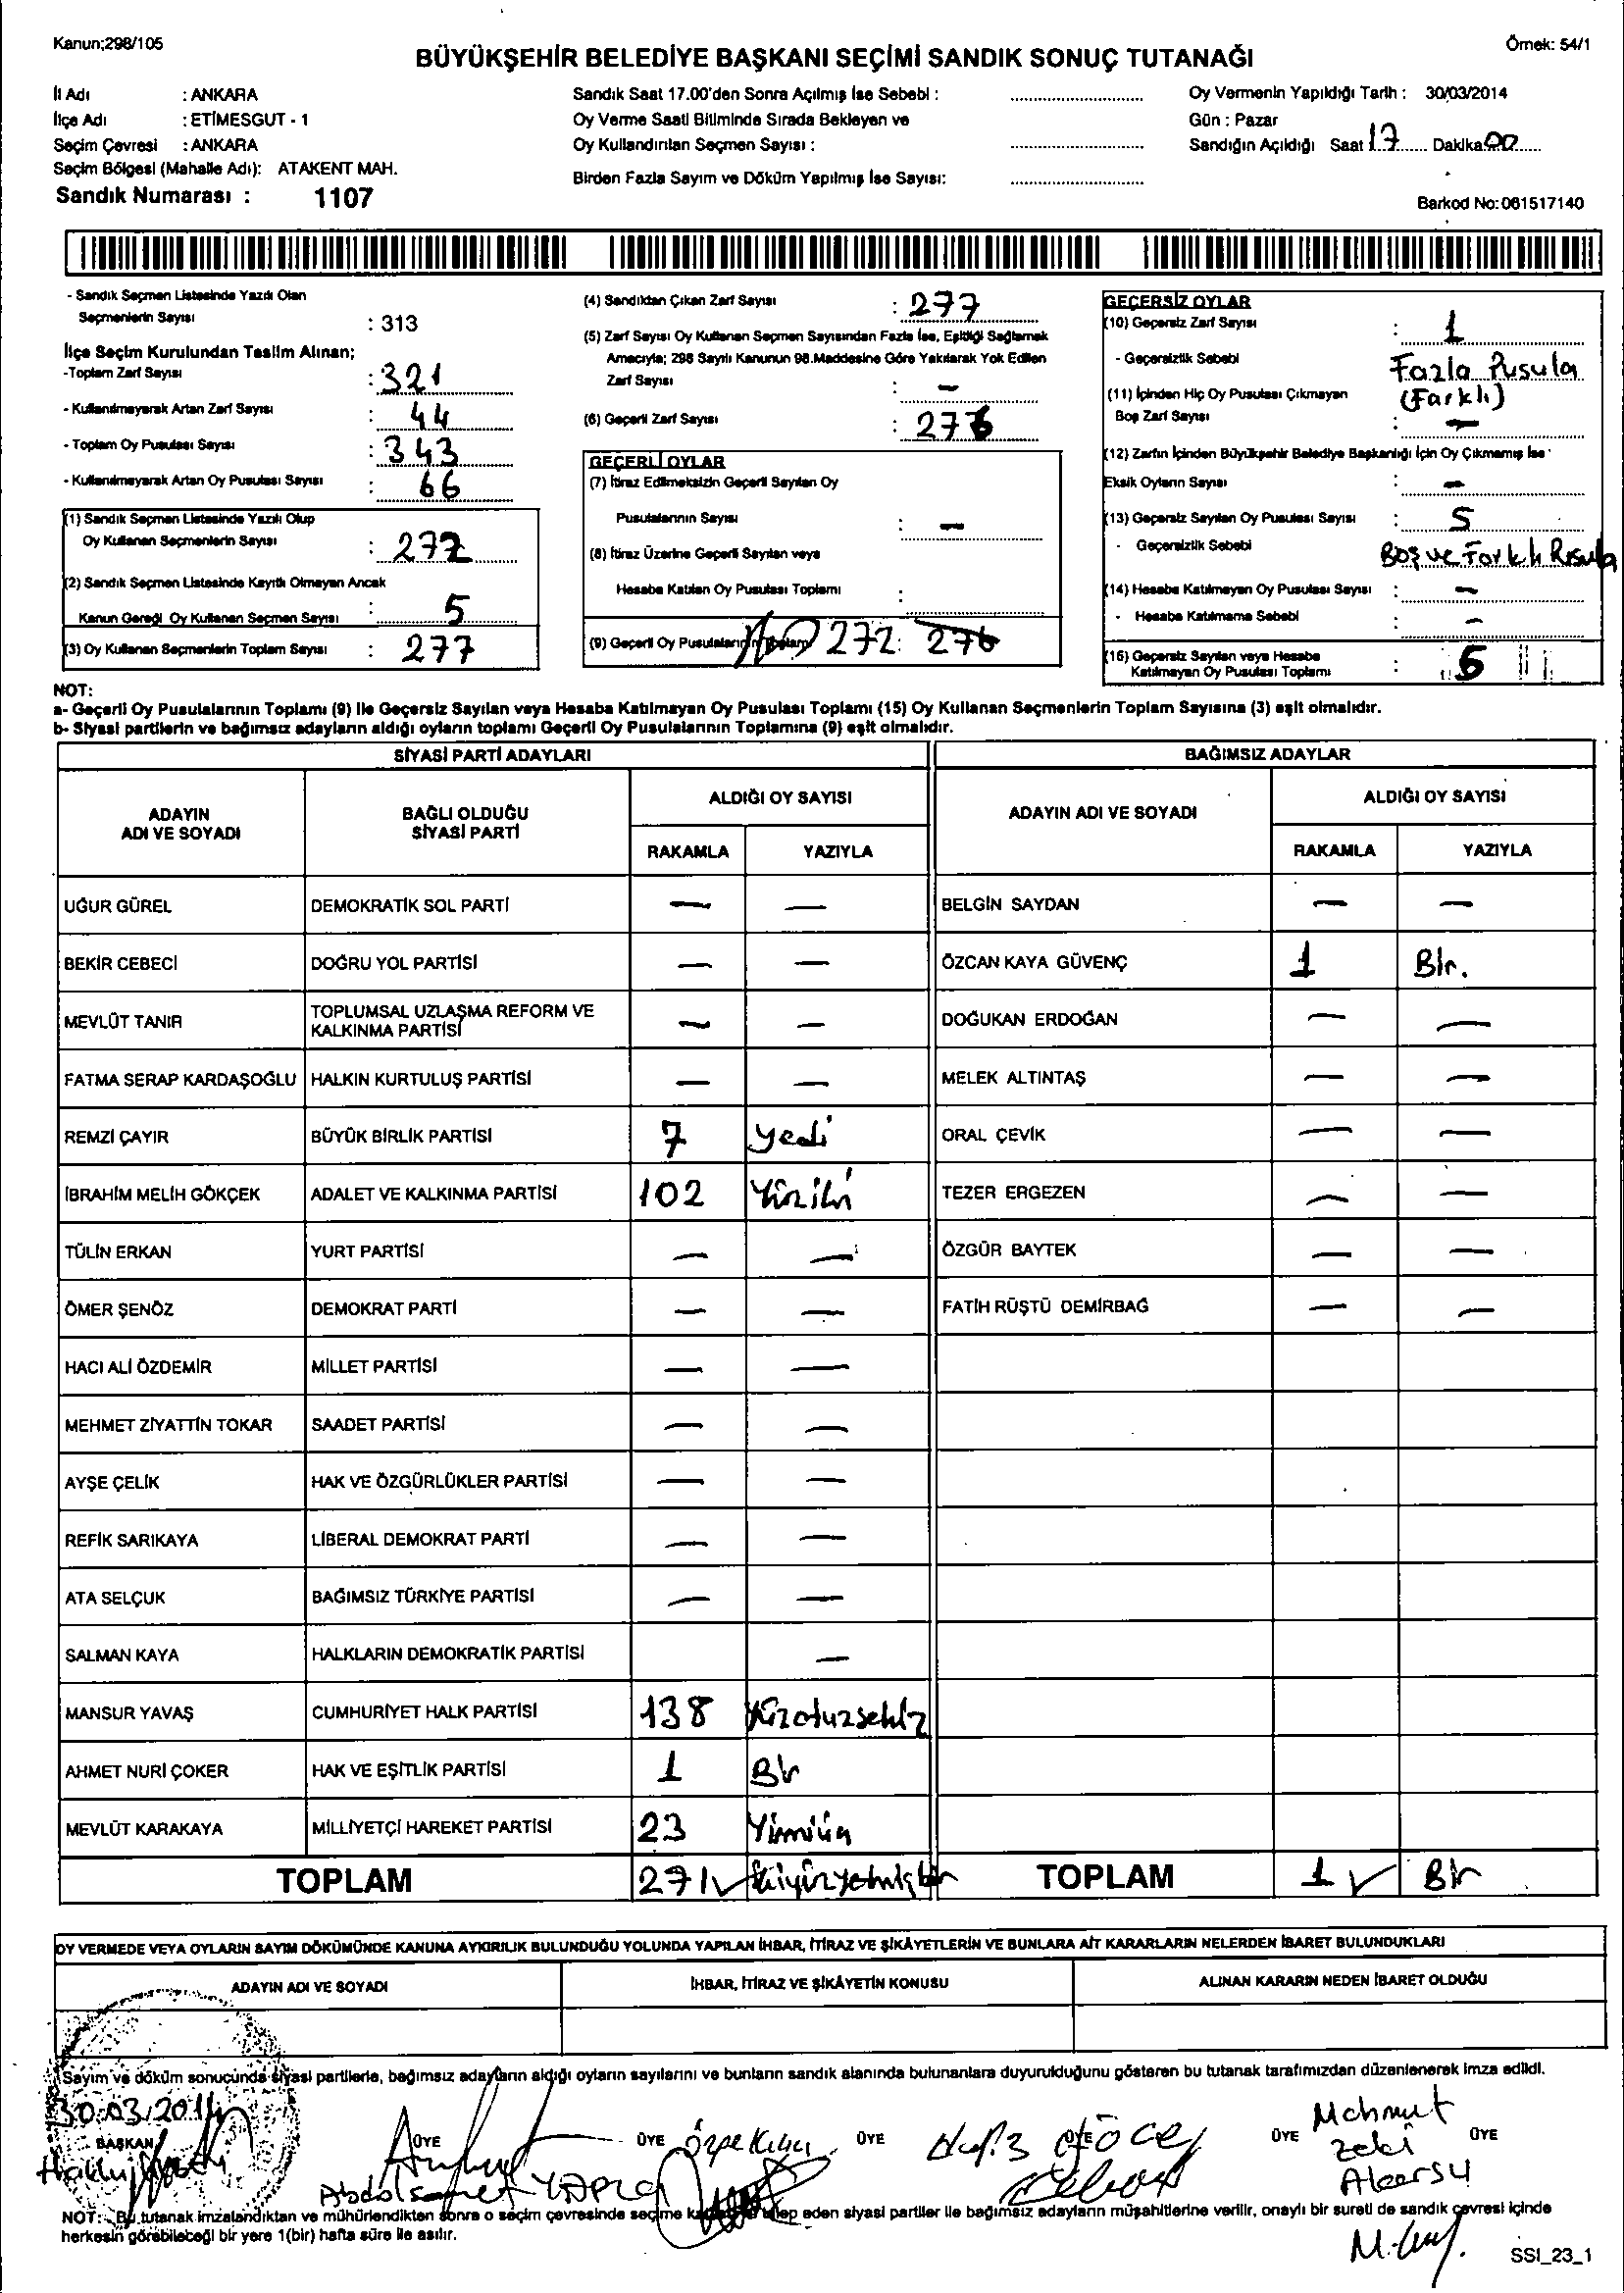 Kanun;298/105
Örnek: 54/1
BÜYÜKŞEHİR BELEDİYE BAŞKANI SEÇİMİ SANDIK SONUÇ TUTANAĞI
İl Adı : ANKARA
İlçe Adı : ETİMESGUT - 1
Seçim Çevresi : ANKARA
Seçim Bölgesi (Mahalle Adı): ATAKENT MAH.
Sandık Numarası : 1107
Sandık Saat 17.00'den Sonra Açılmış İse Sebebi :
Oy Verme Saati Bitiminde Sırada Bekleyen ve
Oy Kullandırılan Seçmen Sayısı :
Birden Fazla Sayım ve Döküm Yapılmış İse Sayısı:
Oy Vermenin Yapıldığı Tarih : 30/03/2014
Gün : Pazar
Sandığın Açıldığı Saat 17 Dakika 00
Barkod No:061517140
- Sandık Seçmen Listesinde Yazılı Olan
Seçmenlerin Sayısı : 313
İlçe Seçim Kurulundan Teslim Alınan;
-Toplam Zarf Sayısı : 321
- Kullanılmayarak Artan Zarf Sayısı : 44
- Toplam Oy Pusulası Sayısı : 343
- Kullanılmayarak Artan Oy Pusulası Sayısı : 66
(1) Sandık Seçmen Listesinde Yazılı Olup
Oy Kullanan Seçmenlerin Sayısı : 272
(2) Sandık Seçmen Listesinde Kayıtlı Olmayan Ancak
Kanun Gereği Oy Kullanan Seçmen Sayısı : 5
(3) Oy Kullanan Seçmenlerin Toplam Sayısı : 277
(4) Sandıktan Çıkan Zarf Sayısı : 277
(5) Zarf Sayısı Oy Kullanan Seçmen Sayısından Fazla İse, Eşitliği Sağlamak
Amacıyla; 298 Sayılı Kanunun 98.Maddesine Göre Yakılarak Yok Edilen
Zarf Sayısı : -
(6) Geçerli Zarf Sayısı : 276
GEÇERLİ OYLAR
(7) İtiraz Edilmeksizin Geçerli Sayılan Oy
Pusulalarının Sayısı : -
(8) İtiraz Üzerine Geçerli Sayılan veya
Hesaba Katılan Oy Pusulası Toplamı :
(9) Geçerli Oy Pusulalarının Toplamı 272 : 276
GEÇERSİZ OYLAR
(10) Geçersiz Zarf Sayısı : 1
- Geçersizlik Sebebi Fazla Pusula
(Farklı)
(11) İçinden Hiç Oy Pusulası Çıkmayan
Boş Zarf Sayısı : -
(12) Zarfın İçinden Büyükşehir Belediye Başkanlığı İçin Oy Çıkmamış İse
Eksik Oyların Sayısı : -
(13) Geçersiz Sayılan Oy Pusulası Sayısı : 5
- Geçersizlik Sebebi Boş ve Farklı Pusula
(14) Hesaba Katılmayan Oy Pusulası Sayısı : -
- Hesaba Katılmama Sebebi : -
(15) Geçersiz Sayılan veya Hesaba
Katılmayan Oy Pusulası Toplamı : 5
NOT:
a- Geçerli Oy Pusulalarının Toplamı (9) ile Geçersiz Sayılan veya Hesaba Katılmayan Oy Pusulası Toplamı (15) Oy Kullanan Seçmenlerin Toplam Sayısına (3) eşit olmalıdır.
b- Siyasi partilerin ve bağımsız adayların aldığı oyların toplamı Geçerli Oy Pusulalarının Toplamına (9) eşit olmalıdır.
SİYASİ PARTİ ADAYLARI
BAĞIMSIZ ADAYLAR
ADAYIN
ADI VE SOYADI
BAĞLI OLDUĞU
SİYASİ PARTİ
ALDIĞI OY SAYISI
RAKAMLA YAZIYLA
ADAYIN ADI VE SOYADI
ALDIĞI OY SAYISI
RAKAMLA YAZIYLA
UĞUR GÜREL DEMOKRATİK SOL PARTİ - - BELGİN SAYDAN - -
BEKİR CEBECİ DOĞRU YOL PARTİSİ - - ÖZCAN KAYA GÜVENÇ 1 Bir.
MEVLÜT TANIR TOPLUMSAL UZLAŞMA REFORM VE
KALKINMA PARTİSİ - - DOĞUKAN ERDOĞAN - -
FATMA SERAP KARDAŞOĞLU HALKIN KURTULUŞ PARTİSİ - - MELEK ALTINTAŞ - -
REMZİ ÇAYIR BÜYÜK BİRLİK PARTİSİ 7 Yedi ORAL ÇEVİK - -
İBRAHİM MELİH GÖKÇEK ADALET VE KALKINMA PARTİSİ 102 Yüziki TEZER ERGEZEN - -
TÜLİN ERKAN YURT PARTİSİ - - ÖZGÜR BAYTEK - -
ÖMER ŞENÖZ DEMOKRAT PARTİ - - FATİH RÜŞTÜ DEMİRBAĞ - -
HACI ALİ ÖZDEMİR MİLLET PARTİSİ - -
MEHMET ZİYATTİN TOKAR SAADET PARTİSİ - -
AYŞE ÇELİK HAK VE ÖZGÜRLÜKLER PARTİSİ - -
REFİK SARIKAYA LİBERAL DEMOKRAT PARTİ - -
ATA SELÇUK BAĞIMSIZ TÜRKİYE PARTİSİ - -
SALMAN KAYA HALKLARIN DEMOKRATİK PARTİSİ -
MANSUR YAVAŞ CUMHURİYET HALK PARTİSİ 138 Yüzotuzsekiz
AHMET NURİ ÇOKER HAK VE EŞİTLİK PARTİSİ 1 Bir
MEVLÜT KARAKAYA MİLLİYETÇİ HAREKET PARTİSİ 23 Yirmiüç
TOPLAM 271 ikiyüzyetmişbir TOPLAM 1 Bir
OY VERMEDE VEYA OYLARIN SAYIM DÖKÜMÜNDE KANUNA AYKIRILIK BULUNDUĞU YOLUNDA YAPILAN İHBAR, İTİRAZ VE ŞİKÂYETLERİN VE BUNLARA AİT KARARLARIN NELERDEN İBARET BULUNDUKLARI
ADAYIN ADI VE SOYADI İHBAR, İTİRAZ VE ŞİKÂYETİN KONUSU ALINAN KARARIN NEDEN İBARET OLDUĞU
Sayım ve döküm sonucunda siyasi partilerle, bağımsız adayların aldığı oyların sayılarını ve bunların sandık alanında bulunanlara duyurulduğunu gösteren bu tutanak tarafımızdan düzenlenerek imza edildi.
30.03.2014
BAŞKAN ÜYE ÜYE ÜYE ÜYE ÜYE
Mehmut
zeki
Akarsu
NOT: Bu tutanak imzalandıktan ve mühürlendikten sonra o seçim çevresinde seçime eden siyasi partiler ile bağımsız adayların müşahitlerine verilir, onaylı bir sureti de sandık çevresi içinde
herkesin görebileceği bir yere 1(bir) hafta süre ile asılır.
SSI_23_1